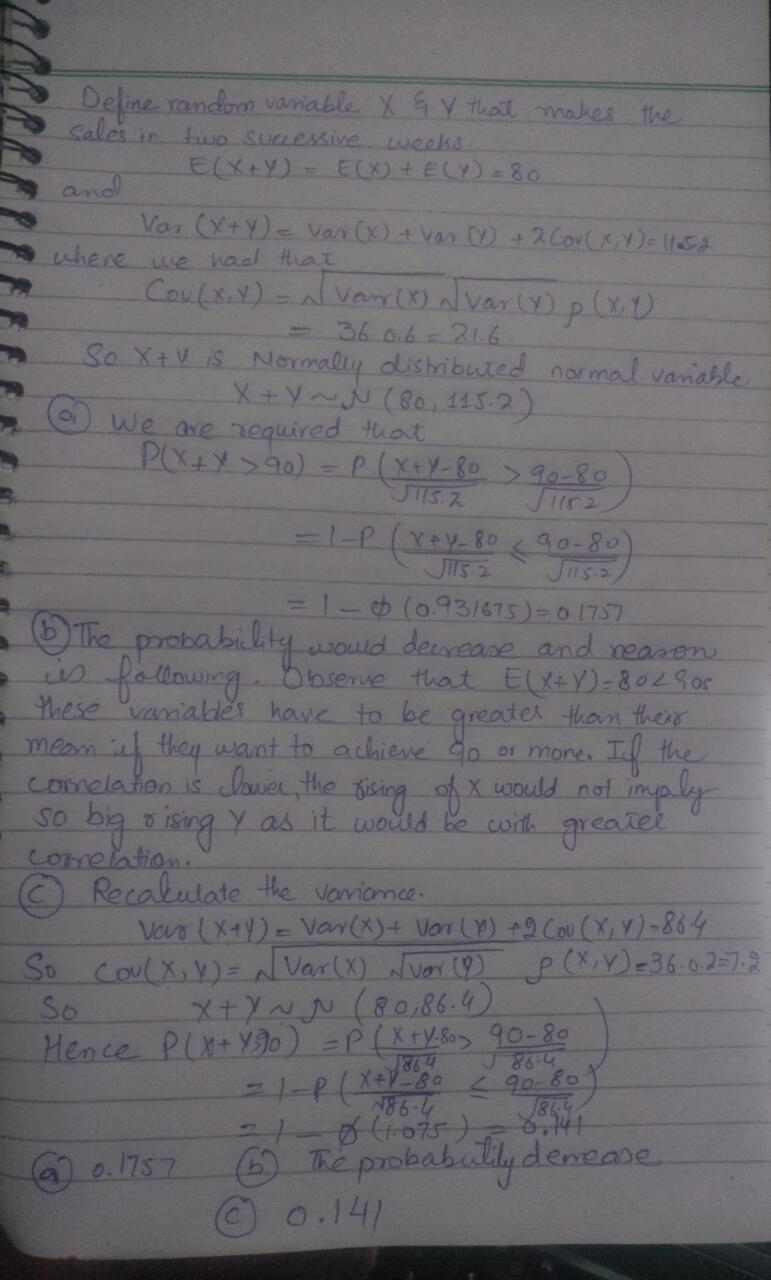 Define random variable X & Y that makes the
sales in two successive weeks.
E(X+Y) = E(X) + E(Y) = 80
and
Var (X+Y) = Var(X) + Var (Y) + 2 Cov(X,Y) = 115.2
where we had that
Cov(X,Y) = √Var(X) √Var(Y) ρ(X,Y)
= 36.0.6 = 21.6
So X+Y is Normally distributed normal variable
X+Y ~ N (80, 115.2)
(a) We are required that
P(X+Y > 90) = P ( X+Y-80 / √115.2 > 90-80 / √115.2 )
= 1-P ( X+Y-80 / √115.2 ≤ 90-80 / √115.2 )
= 1 - φ (0.931675) = 0.1757
(b) The probability would decrease and reason
is following. Observe that E(X+Y)=80<90s
these variables have to be greater than their
mean if they want to achieve 90 or more. If the
correlation is lower, the rising of X would not imply
so big rising Y as it would be with greater
correlation.
(c) Recalculate the variance.
Var (X+Y) = Var(X) + Var (Y) + 2 Cov (X,Y) = 86.4
So Cov(X,Y) = √Var(X) √Var(Y) ρ(X,Y) = 36.0.2=7.2
So X+Y ~ N (80,86.4)
Hence P(X+Y>90) = P ( X+Y-80 / √86.4 > 90-80 / √86.4 )
= 1-P ( X+Y-80 / √86.4 ≤ 90-80 / √86.4 )
= 1 - φ (1.075) = 0.141
(a) 0.1757 (b) The probability decrease
(c) 0.141